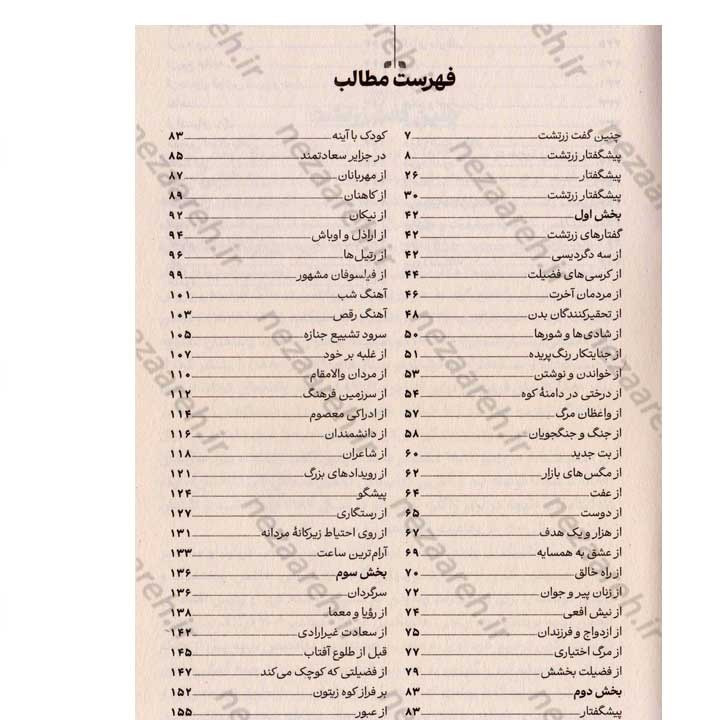 فهرست مطالب
چنین گفت زرتشت ۷
پیشگفتار زرتشت ۸
پیشگفتار ۲۶
پیشگفتار زرتشت ۳۰
بخش اول ۴۲
گفتارهای زرتشت ۴۲
از سه دگردیسی ۴۲
از کرسی‌های فضیلت ۴۴
از مردمان آخرت ۴۶
از تحقیرکنندگان بدن ۴۸
از شادی‌ها و شورها ۵۰
از جنایتکار رنگ‌پریده ۵۱
از خواندن و نوشتن ۵۳
از درختی در دامنهٔ کوه ۵۴
از واعظان مرگ ۵۷
از جنگ و جنگجویان ۵۸
از بت جدید ۶۰
از مگس‌های بازار ۶۲
از عفت ۶۴
از دوست ۶۵
از هزار و یک هدف ۶۷
از عشق به همسایه ۶۹
از راه خالق ۷۰
از زنان پیر و جوان ۷۲
از نیش افعی ۷۴
از ازدواج و فرزندان ۷۵
از مرگ اختیاری ۷۷
از فضیلت بخشش ۷۹
بخش دوم ۸۳
پیشگفتار ۸۳
کودک با آینه ۸۳
در جزایر سعادتمند ۸۵
از مهربانان ۸۷
از کاهنان ۸۹
از نیکان ۹۲
از اراذل و اوباش ۹۴
از رتیل‌ها ۹۶
از فیلسوفان مشهور ۹۹
آهنگ شب ۱۰۱
آهنگ رقص ۱۰۳
سرود تشییع جنازه ۱۰۵
از غلبه بر خود ۱۰۷
از مردان والامقام ۱۱۰
از سرزمین فرهنگ ۱۱۲
از ادراکی معصوم ۱۱۴
از دانشمندان ۱۱۶
از شاعران ۱۱۸
از رویدادهای بزرگ ۱۲۱
پیشگو ۱۲۴
از رستگاری ۱۲۷
از روی احتیاط زیرکانهٔ مردانه ۱۳۱
آرام‌ترین ساعت ۱۳۳
بخش سوم ۱۳۶
سرگردان ۱۳۶
از رؤیا و معما ۱۳۸
از سعادت غیرارادی ۱۴۲
قبل از طلوع آفتاب ۱۴۵
از فضیلتی که کوچک می‌کند ۱۴۷
بر فراز کوه زیتون ۱۵۲
از عبور ۱۵۵
nezaareh.ir